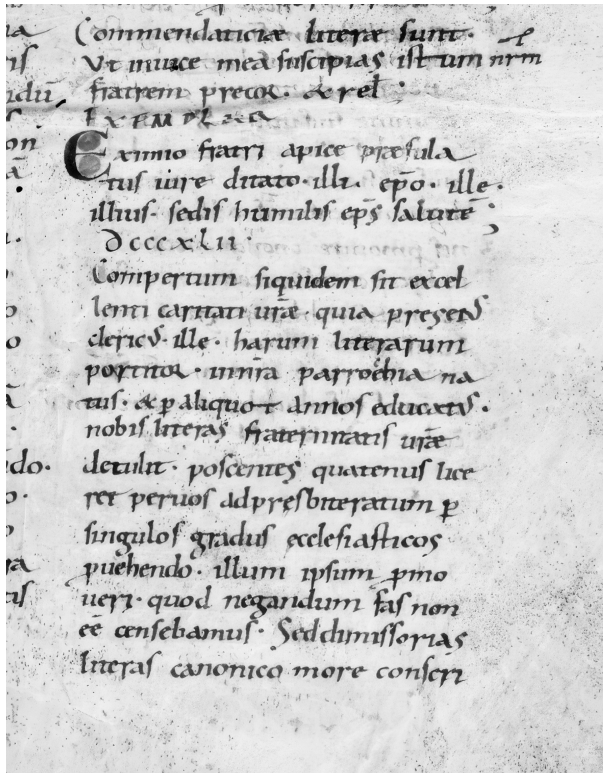 Commendaticiæ literæ sunt·
Ut inuice mea suscipias istum nrm̅
fratrem precor· & rel·
EXEMPLAR
Eximio fratri apice præsula
tus iure ditato· illi· ep̅o· ille·
illius· sedis humilis ep̅s salutē
Dcccxlii·
Compertum siquidem sit excel
lenti caritati ur̅æ· quia presens
clericus· ille· harum literarum
portitor· in nr̅a parrochia na
tus· & p aliquot annos educatus·
nobis literas fraternitatis ur̅æ
detulit· poscentes quatenus lice
ret per uos ad presbiteratum p
singulos gradus ecclesiasticos
puehendo· illum ipsum pmo
ueri· quod negandum fas non
eē censebamus· Sed dimissorias
literas canonico more conscri